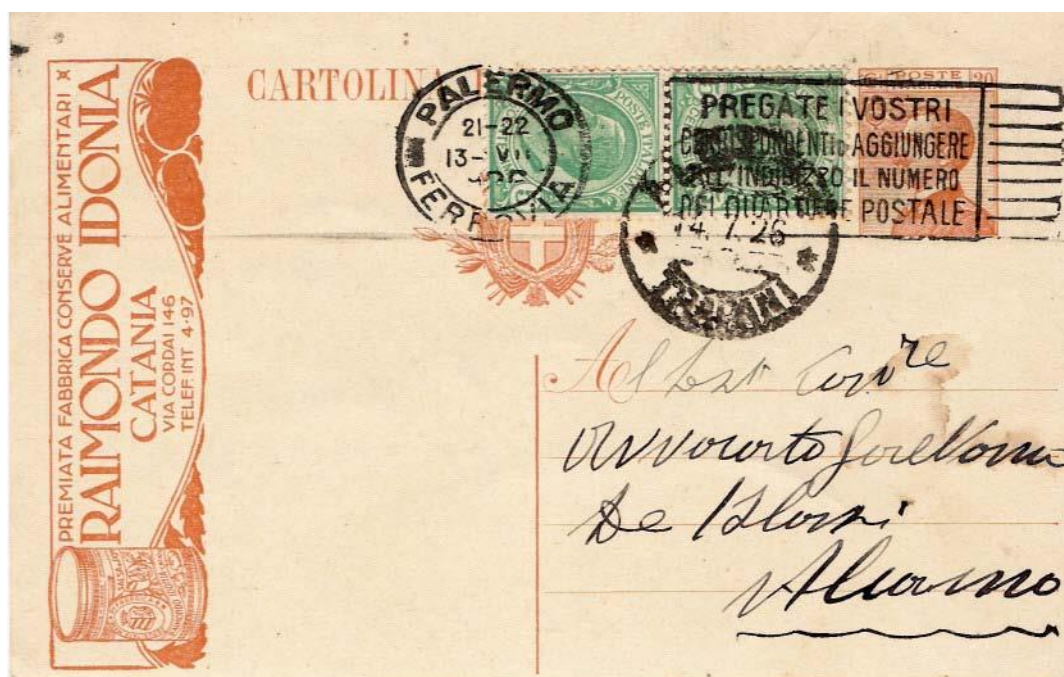 PREMIATA FABBRICA CONSERVE ALIMENTARI
RAIMONDO IDONIA
CATANIA
VIA CORDAI 146
TELEF. INT 4-97
CARTOLINA
PALERMO
21-22
13-VII
FERROVIA
POSTE ITALIANE
POSTE
20
PREGATE I VOSTRI
CORRISPONDENTI DI AGGIUNGERE
ALL'INDIRIZZO IL NUMERO
DEL QUARTIERE POSTALE
14.7.26
TRAPANI
Avvocato
De Blasi
Alcamo